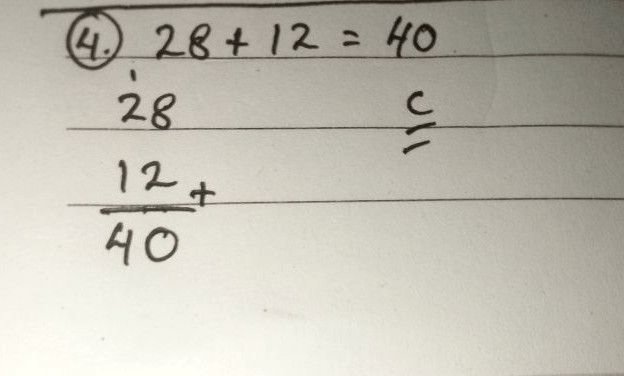 4. 28 + 12 = 40
1
28
C
12 +
40